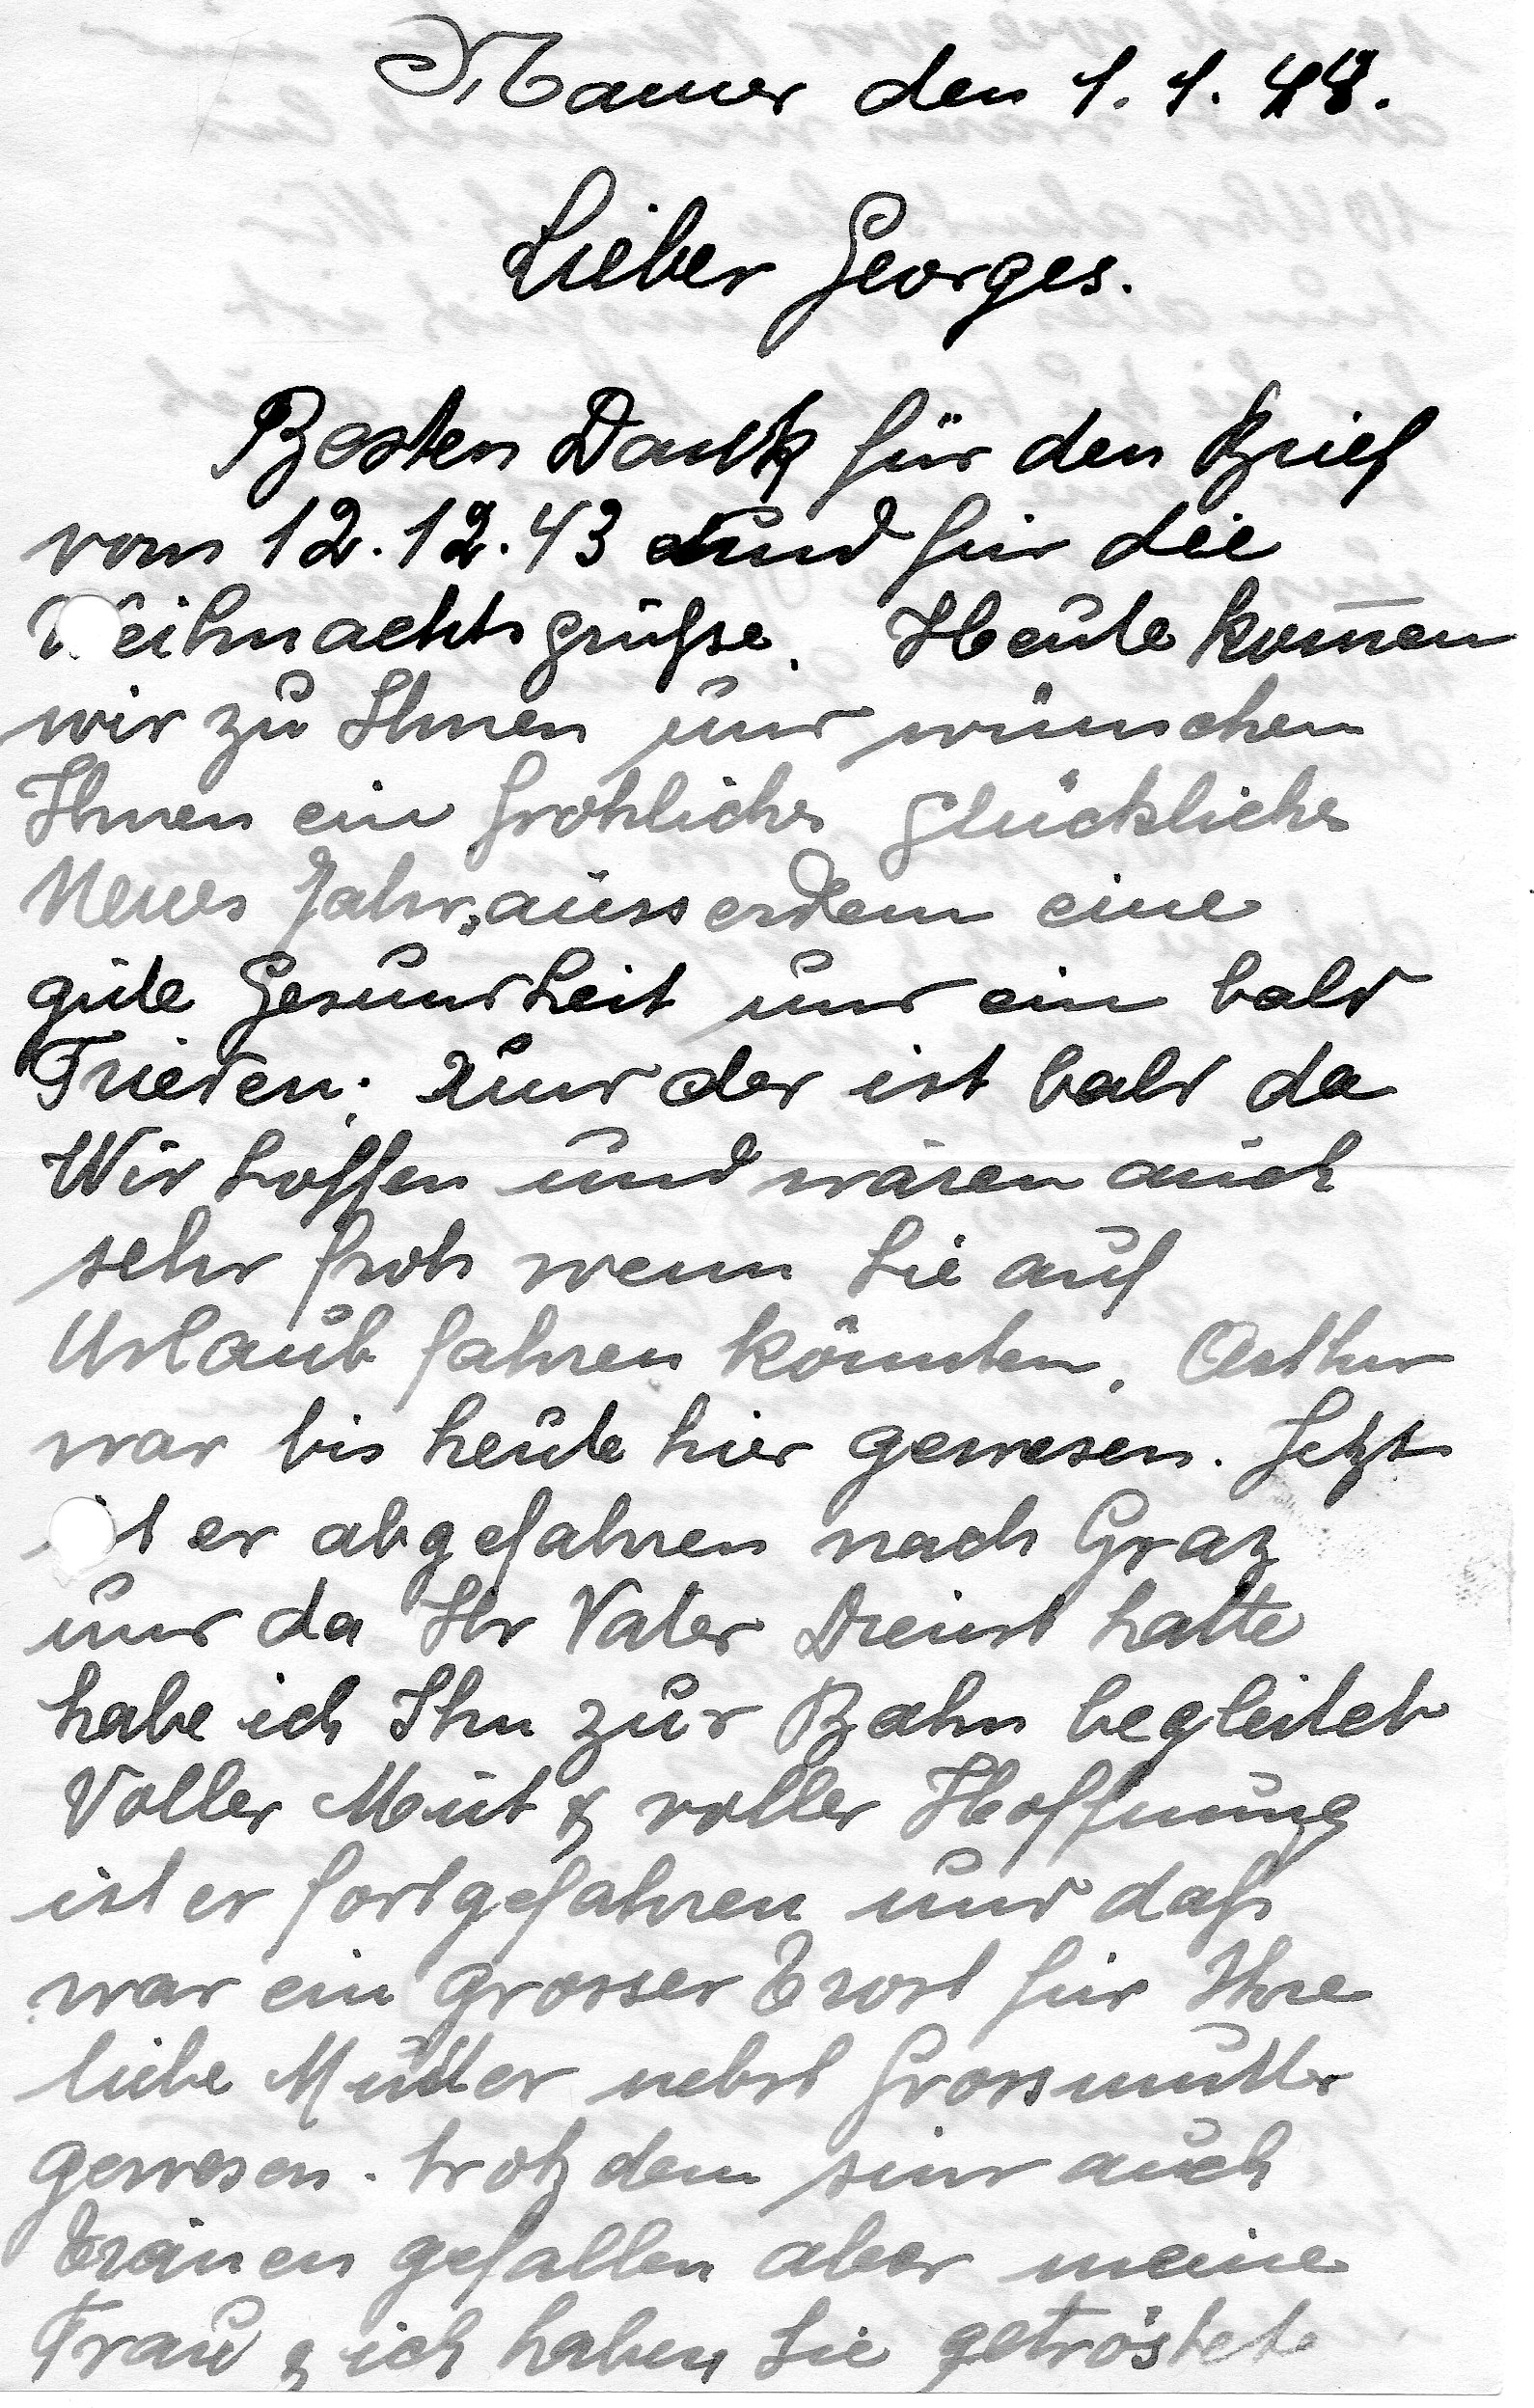 Mamer den 1. 1. 44.
Lieber Georges.
Besten Dank für den Brief
vom 12. 12. 43 und für die
Weihnachtsgrüße. Heute kom̅en
wir zu Ihnen und wünschen
Ihnen ein frohliches glückliches
Neues Jahr, ausserdem eine
gute Gesundheit und ein bald
Frieden; und der ist bald da
Wir hoffen und wären auch
sehr froh wenn Sie auf
Urlaub fahren könnten. Arthur
war bis heute hier gewesen. Jetzt
ist er abgefahren nach Graz
und da Ihr Vater Dienst hatte
habe ich Ihn zur Bahn begleitet
Voller Mut & voller Hoffnung
ist er fortgefahren und daß
war ein grosser Trost für Ihre
liebe Mutter nebst Grossmutter
gewesen. trotzdem sind auch
Tränen gefallen aber meine
Frau & ich haben Sie getröstet